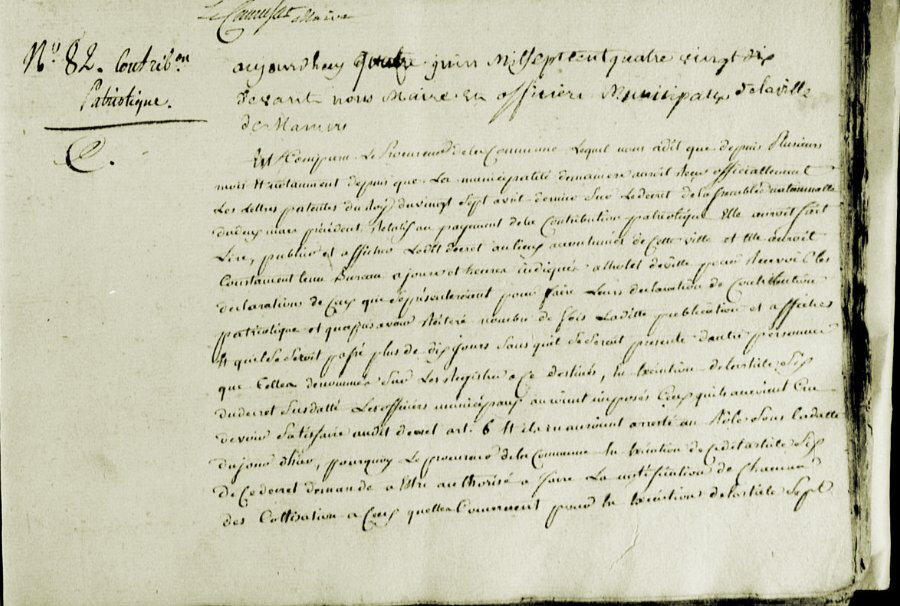 Maire
N.o 82. Contrib.on
Patriotique.
aujourdhuy quatre juin Mil sept cent quatre vingt dix
devant nous Maire en officiers Municipaux de la ville
de Mamers
Est Comparu Le Procureur de la Commune Lequel nous a dit que depuis Plusieurs
mois et notamment depuis que La municipalité de mamers auroit Receu officiellement
Les Lettres patentes du Roy du vingt sept avril dernier Sur Le decret de la
du mars précédent, Relatif au payement de la Contribution patriotique Elle auroit fait
Lire, publier et afficher Ledit decret au lieux acoutumés de Cette ville et Elle auroit
Constament tenu Bureau a jours et heures indiqués a lhotel de ville pour Recevoir Les
declarations de Ceux que se présenteroient pour faire Leurs declaration de Contribution
patriotique et quapres avoir Réiteré nombre de fois Ladite publication et affiches
et quil se Seroit passé plus de dix jours Sans quil se Seroit presenté dautre personnes
que Celles denommées Sur Les Registres a Ce destinés, En Execution de larticle Six
du decret Susdatté Les officiers municipaux auroient imposés Ceux quils auroient Cru
devoir Satisfaire audit decret art. 6 et ils en auroient arresté un Rôle Sous la datte
du jour dhier, pourquoy Le procureur de la Commune En Execution de Cedit article Six
de Ce decret demande a Estre authorisé a faire La notification de Chacune
des Cottisation a Ceux quelles Concernent pour En Execution de larticle Sept